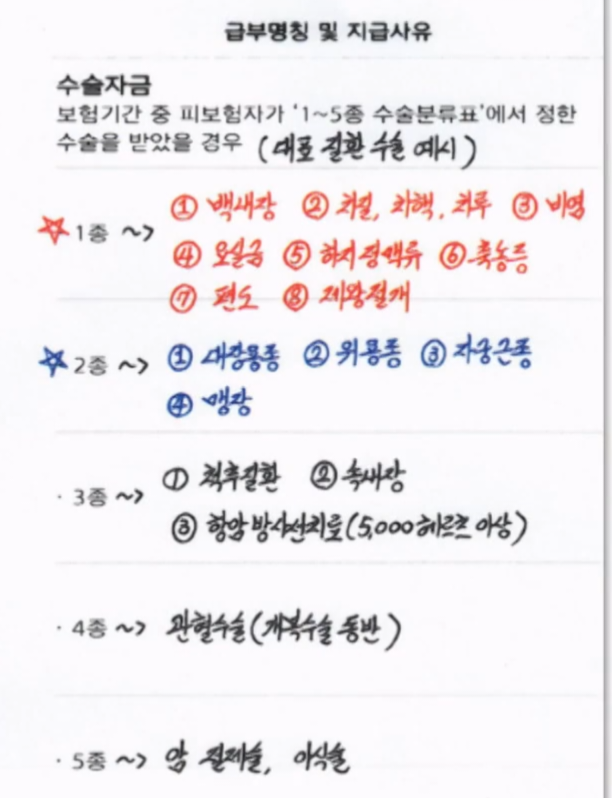 급부명칭 및 지급사유
수술자금
보험기간 중 피보험자가 '1~5종 수술분류표'에서 정한
수술을 받았을 경우 (대표 질환 수술 예시)
☆ 1종 ~> ① 백내장 ② 치질, 치핵, 치루 ③ 비염
④ 요실금 ⑤ 하지정맥류 ⑥ 축농증
⑦ 편도 ⑧ 제왕절개
☆ 2종 ~> ① 대장용종 ② 위용종 ③ 자궁근종
④ 맹장
· 3종 ~> ① 척추질환 ② 녹내장
③ 항암방사선치료(5,000헤르츠 이상)
· 4종 ~> 관혈수술(개복수술 동반)
· 5종 ~> 암 절제술, 이식술